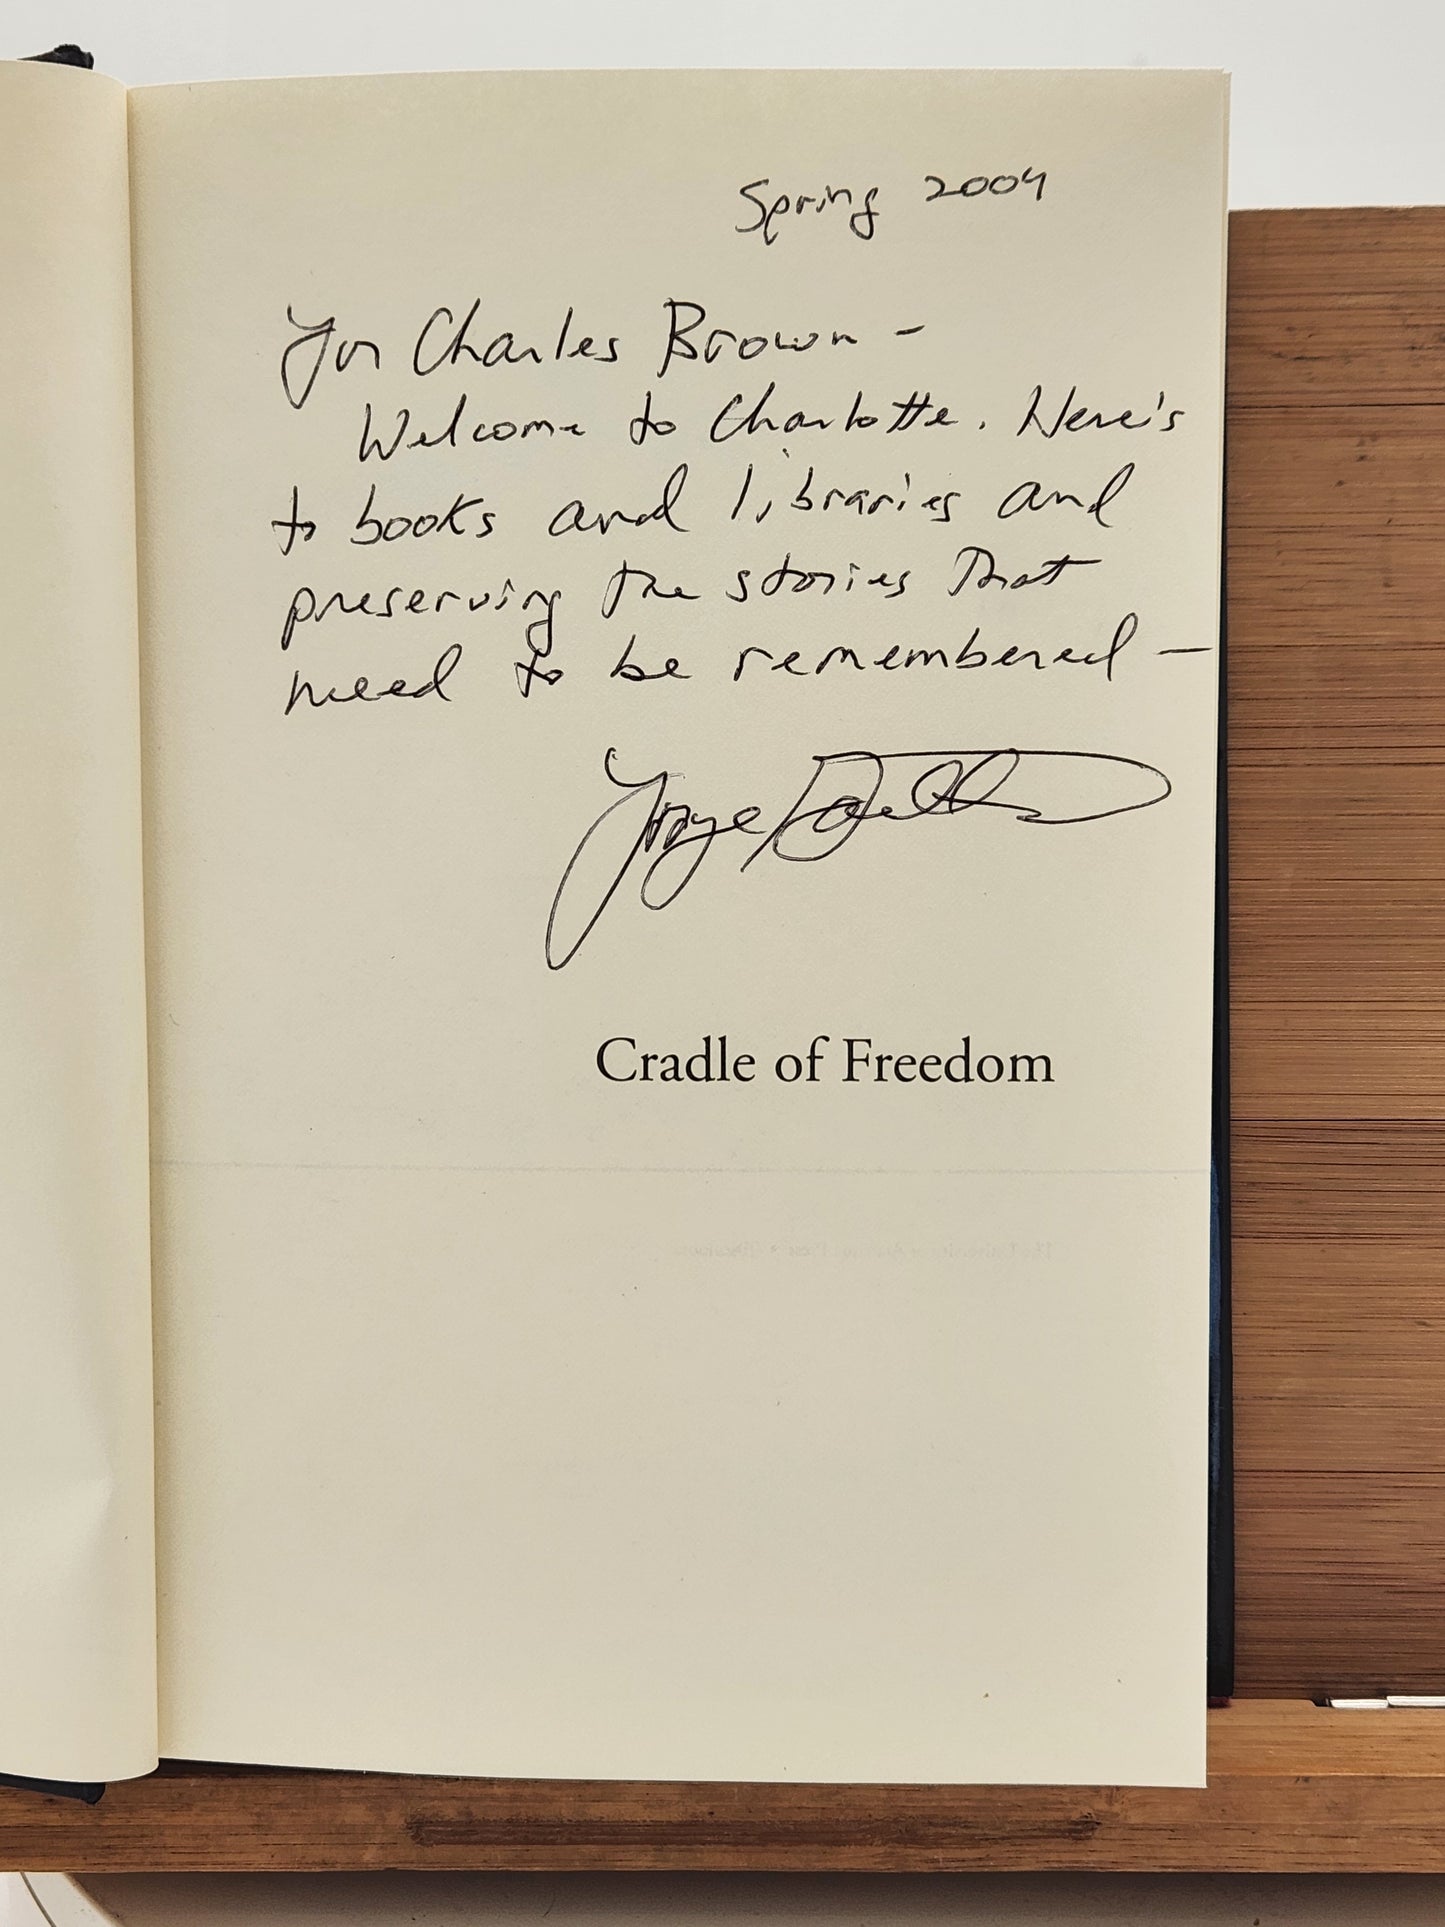 Spring 2004
For Charles Brown –
Welcome to Charlotte. Here's
to books and libraries and
preserving the stories that
need to be remembered –
Cradle of Freedom